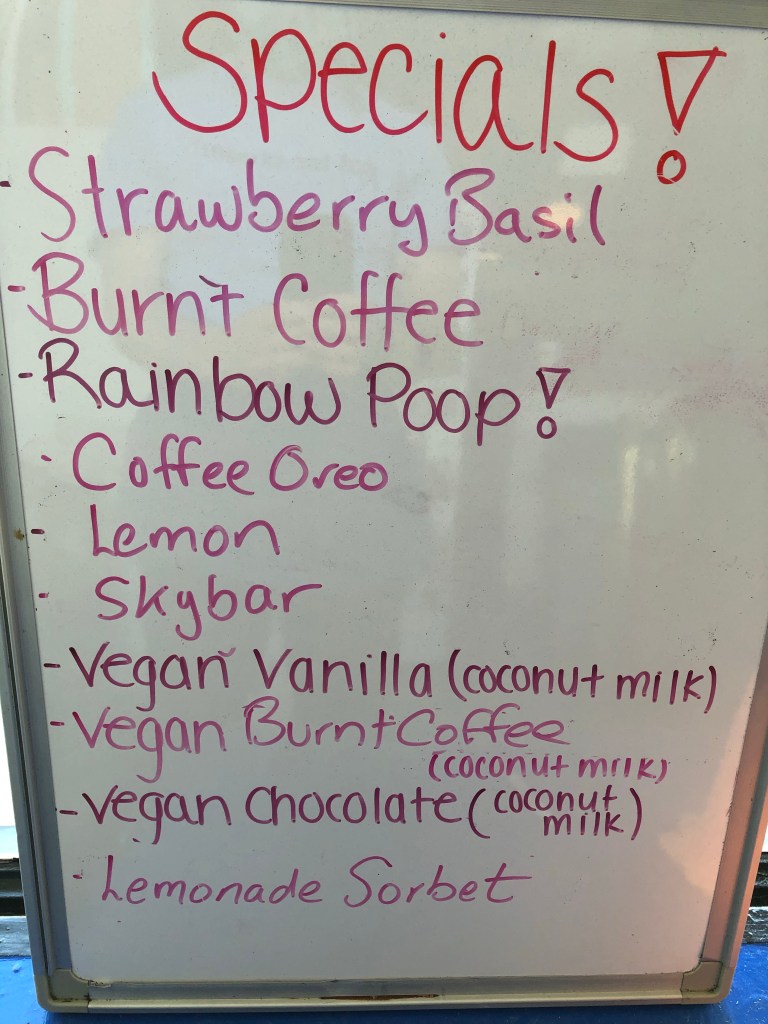 Specials!
- Strawberry Basil
- Burnt Coffee
- Rainbow Poop!
- Coffee Oreo
- Lemon
- Skybar
- Vegan Vanilla (coconut milk)
- Vegan Burnt Coffee
(coconut milk)
- Vegan Chocolate (coconut
milk)
- Lemonade Sorbet